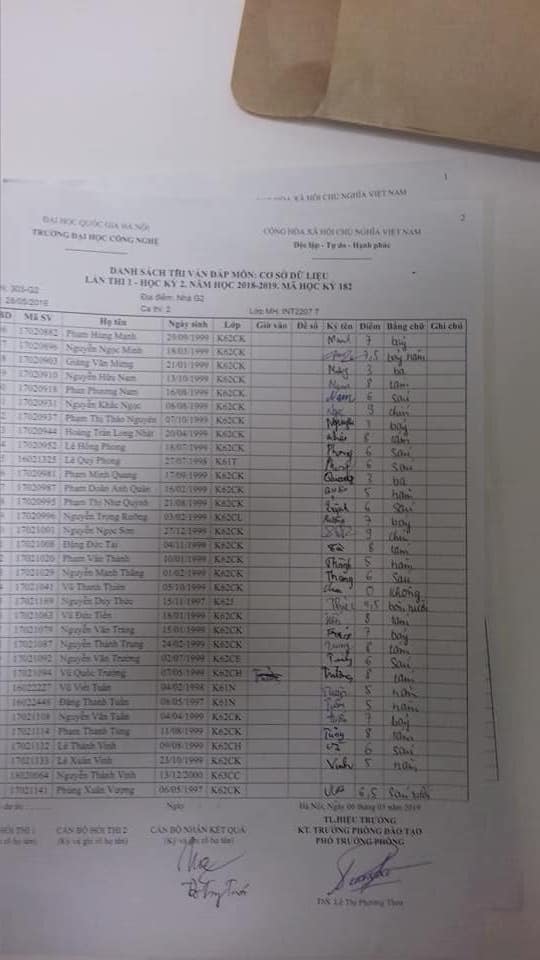 1
HÒA XÃ HỘI CHỦ NGHĨA VIỆT NAM
2
ĐẠI HỌC QUỐC GIA HÀ NỘI
CỘNG HÒA XÃ HỘI CHỦ NGHĨA VIỆT NAM
TRƯỜNG ĐẠI HỌC CÔNG NGHỆ
Độc lập - Tự do - Hạnh phúc
DANH SÁCH THI VẤN ĐÁP MÔN: CƠ SỞ DỮ LIỆU
LẦN THI 1 - HỌC KỲ 2, NĂM HỌC 2018-2019. MÃ HỌC KỲ 182
303-G2 Địa điểm: Nhà G2
Ca thi: 2 Lớp MH: INT2207 7
Mã SV Họ tên Ngày sinh Lớp Giờ vào Đề số Ký tên Điểm Bằng chữ Ghi chú
17020882 Phạm Hùng Mạnh 20/09/1999 K62CK 7 bảy
17020896 Nguyễn Ngọc Minh 18/03/1999 K62CK 7,5 bảy năm
17020903 Giang Văn Mừng 21/01/1999 K62CK 3 ba
17020910 Nguyễn Hữu Nam 13/10/1999 K62CK 8 tám
17020918 Phan Phương Nam 16/08/1999 K62CK Nam 6 sáu
17020931 Nguyễn Khắc Ngọc K62CK Ngọc 9 chín
17020937 Phạm Thị Thảo Nguyên 07/10/1999 K62CK Nguyên bảy
17020944 Hoàng Trần Long Nhật 20/04/1999 K62CK 8 tám
17020952 Lê Hồng Phong 18/07/1999 K62CK Phong 6 sáu
16021325 Lê Quý Phong 27/07/1998 K61T 6 sáu
17020981 Phạm Minh Quang 17/09/1999 K62CK Quang 3 ba
17020987 Phạm Doãn Anh Quân 15/02/1999 K62CK 5 năm
17020995 Phạm Thị Như Quỳnh 21/08/1999 K62CK 6 sáu
17020996 Nguyễn Trọng Rưỡng 03/02/1999 K62CL 7 bảy
17021001 Nguyễn Ngọc Sơn 27/12/1999 K62CK 9 chín
17021008 Đặng Đức Tài 04/11/1999 K62CK 8 tám
17021026 Phạm Văn Thành 10/01/1999 K62CK Thành 5 năm
17021029 Nguyễn Mạnh Thắng 01/02/1999 K62CK Thang 6 sáu
17021041 Vũ Thanh Thiên 05/10/1999 K62CK 0 không
17021189 Nguyễn Duy Thức 15/11/1997 K62J 4,5 bốn rưỡi
17021063 Vũ Đức Tiến 18/01/1999 K62CK 8 tám
17021079 Nguyễn Văn Trang 15/01/1999 K62CK 7 bảy
17021087 Nguyễn Thành Trung 24/02/1999 K62CK 8 tám
17021092 Nguyễn Văn Trường 02/07/1999 K62CE 6 sáu
17021094 Vũ Quốc Trường 07/05/1999 K62CH Trường 8 tám
16022227 Vũ Việt Tuân 04/02/1998 K61N 5 năm
16022448 Đặng Thanh Tuấn 06/05/1997 K61N Tuấn 5 năm
17021108 Nguyễn Văn Tuấn 04/04/1999 K62CK 7 bảy
17021114 Phạm Thanh Tùng 11/08/1999 K62CK Tùng 8 tám
17021132 Lê Thành Vinh 09/08/1999 K62CH 6 sáu
17021133 Lê Xuân Vinh 23/10/1999 K62CK Vinh 5 năm
18020064 Nguyễn Thành Vinh 13/12/2000 K63CC
17021141 Phùng Xuân Vượng 06/05/1997 K62CK 6,5 sáu rưỡi
dự thi: Ngày Hà Nội, Ngày 06 tháng 05 năm 2019
TL.HIỆU TRƯỞNG
HỎI THI 1 CÁN BỘ HỎI THI 2 CÁN BỘ NHẬN KẾT QUẢ KT. TRƯỞNG PHÒNG ĐÀO TẠO
(Ký và ghi rõ họ tên) (Ký và ghi rõ họ tên) PHÓ TRƯỞNG PHÒNG
ThS. Lê Thị Phương Thoa